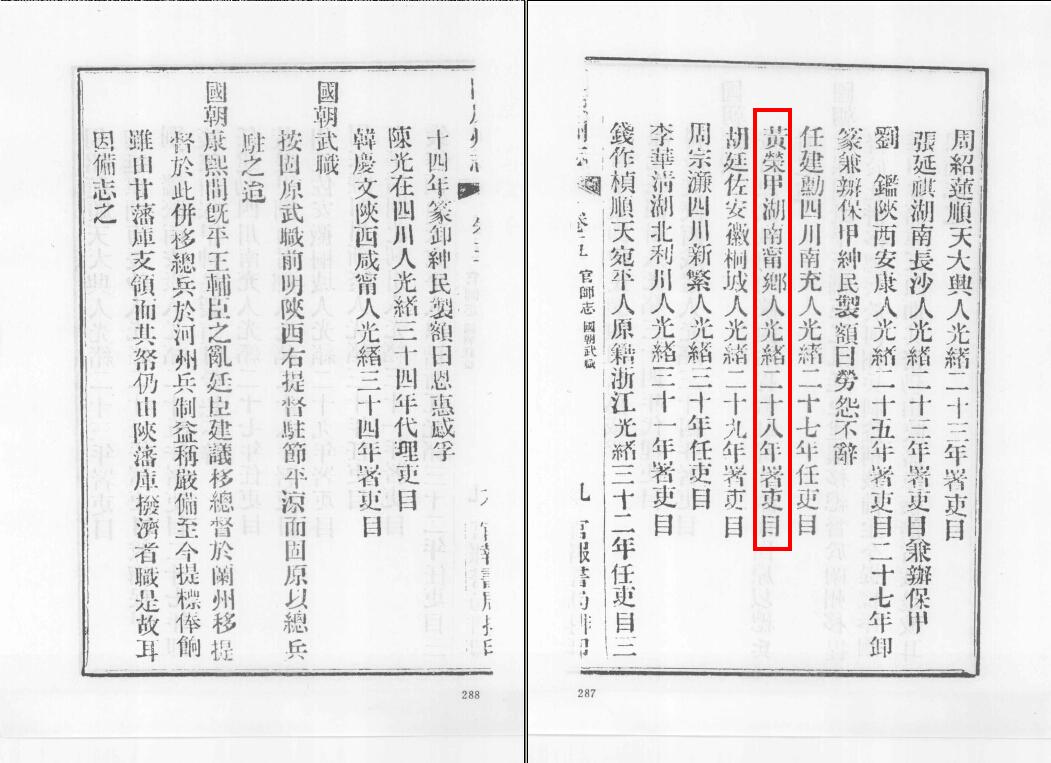 周紹蓮順天大興人光緒二十三年署吏目
張延祺湖南長沙人光緒二十三年署吏目兼辦保甲
劉 鑑陝西安康人光緒二十五年署吏目二十七年卸
篆兼辦保甲紳民製額曰勞怨不辭
任建勳四川南充人光緒二十七年任吏目
黃榮甲湖南甯鄉人光緒二十八年署吏目
胡廷佐安徽桐城人光緒二十九年署吏目
周宗濂四川新繁人光緒三十年任吏目
李華清湖北利川人光緒三十一年署吏目
錢作楨順天宛平人原籍浙江光緒三十二年任吏目三
卷五 官師志 國朝武職 九 官報書局排印
287
十四年篆卸紳民製額曰恩惠感孚
陳光在四川人光緒三十四年代理吏目
韓慶文陝西咸甯人光緒三十四年署吏目
國朝武職
按固原武職前明陝西右提督駐節平涼而固原以總兵
駐之迨
國朝康熙間旣平王輔臣之亂廷臣建議移總督於蘭州移提
督於此併移總兵於河州兵制益稱嚴備至今提標俸餉
雖由甘藩庫支領而其帑仍由陝藩庫撥濟者職是故耳
因備志之
288